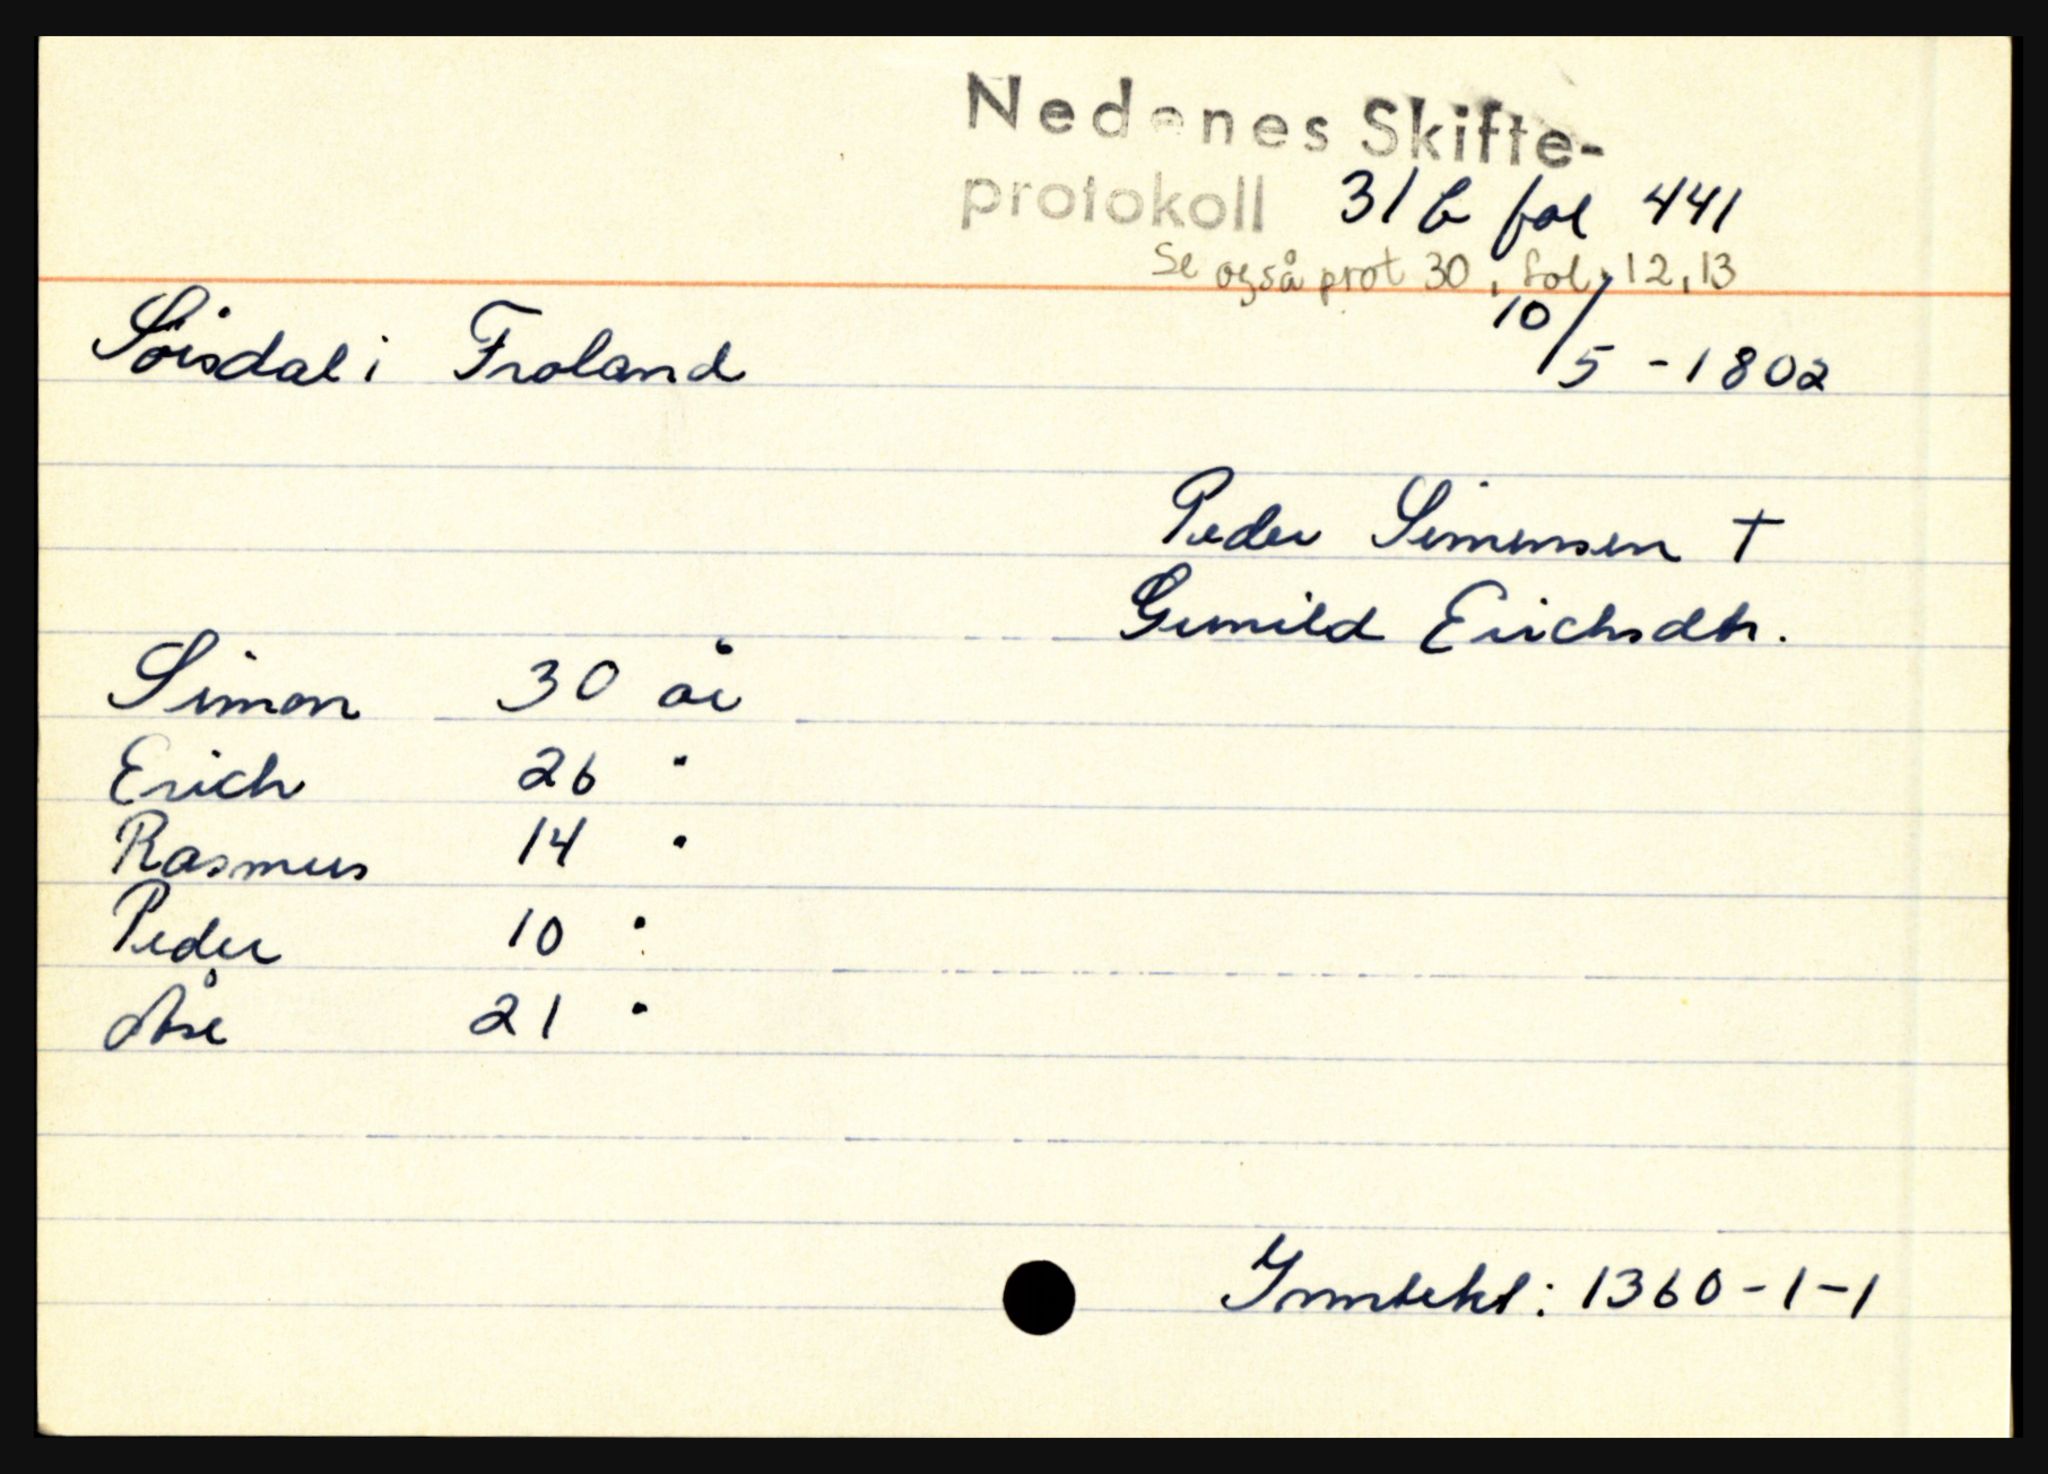 Nedenes Skifte-
protokoll 31 b fol 441
Se også prot 30, fol, 12,13
Sørsdal i Froland 10/5 - 1802
Peder Simensen †
Gunild Erichsdtr.
Simon 30 år
Erich 26 "
Rasmus 14 "
Peder 10 "
Åse 21 "
Inntekt: 1360-1-1